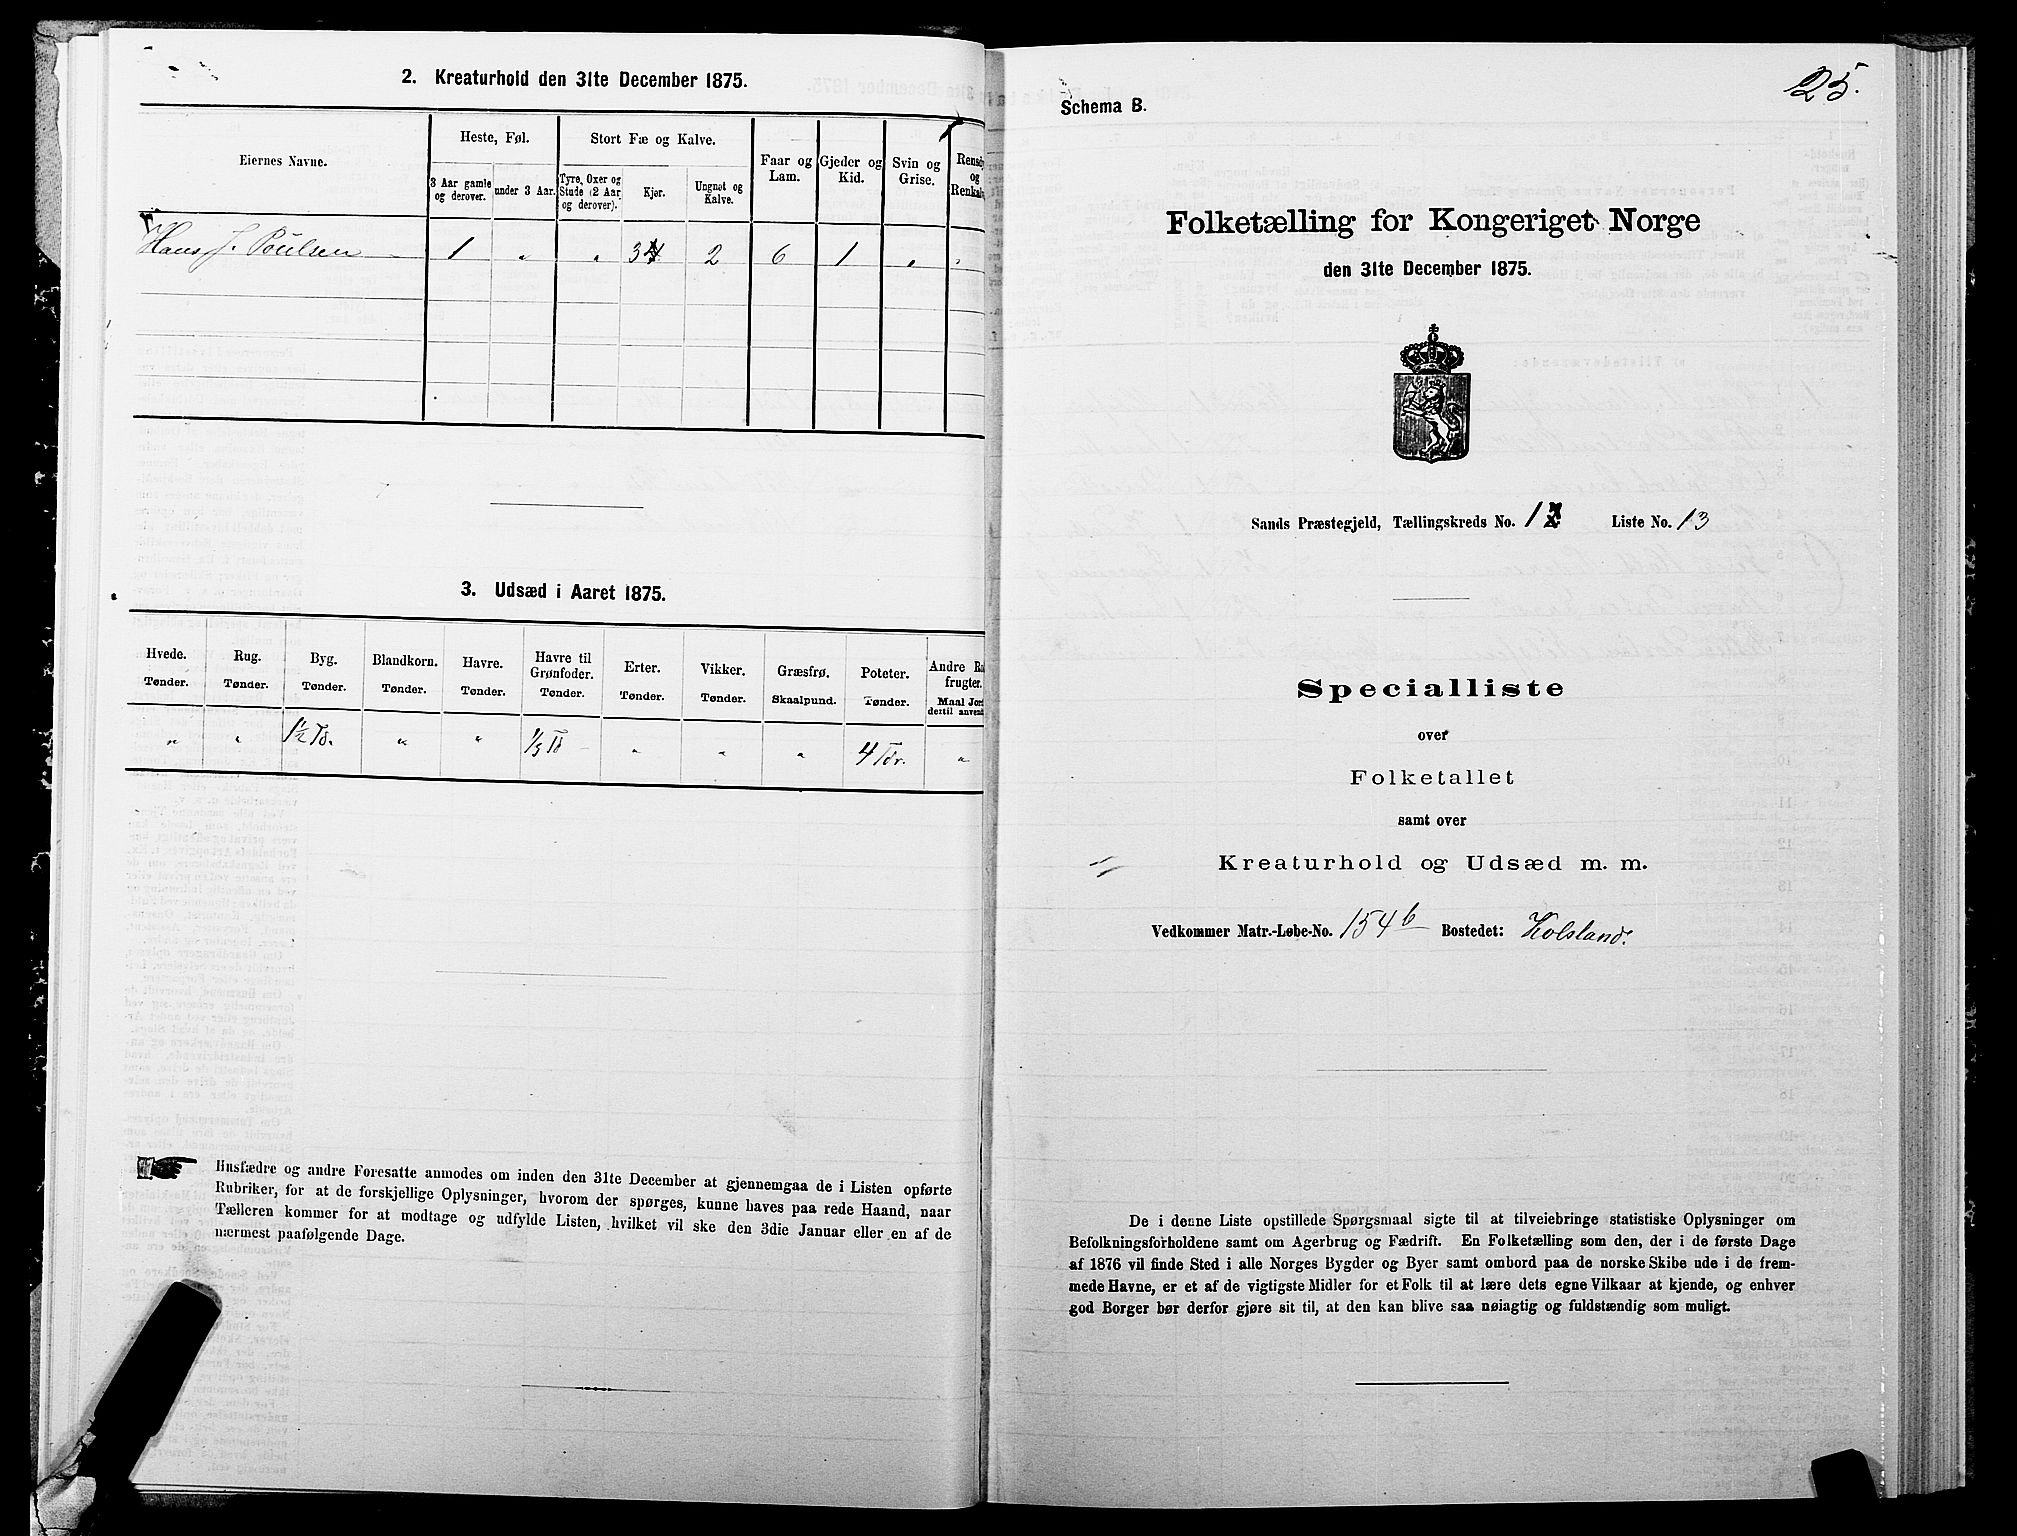 2. Kreaturhold den 31te December 1875.
Eiernes Navne.
Heste, Føl.
Stort Fæ og Kalve.
Faar og Lam.
Gjeder og Kid.
Svin og Grise.
og
3 Aar gamle og derover.
under 3 Aar.
Tyre, Oxer og Stude (2 Aar og derover).
Kjør.
Ungnøt og Kalve.
Hans J. Poulsen 1 " " 3 2 6 1 " "
3. Udsæd i Aaret 1875.
Hvede. Rug. Byg. Blandkorn. Havre. Havre til Grønfoder. Erter. Vikker. Græsfrø. Poteter. Andre
frugter.
Tønder. Tønder. Tønder. Tønder. Tønder. Tønder. Tønder. Tønder. Skaalpund. Tønder. Maal
dertil
" " 1½ Td. " " ⅓ Td " " " 4 Tdr. "
Husfædre og andre Foresatte anmodes om inden den 31te December at gjennemgaa de i Listen opførte
Rubriker, for at de forskjellige Oplysninger, hvorom der spørges, kunne haves paa rede Haand, naar
Tælleren kommer for at modtage og udfylde Listen, hvilket vil ske den 3die Januar eller en af de
nærmest paafølgende Dage.
25.
Schema B.
Folketælling for Kongeriget Norge
den 31te December 1875.
Sands Præstegjeld, Tællingskreds No. 1 Liste No. 13
Specialliste
over
Folketallet
samt over
Kreaturhold og Udsæd m. m.
Vedkommer Matr.-Løbe-No. 154b Bostedet: Kolsland.
De i denne Liste opstillede Spørgsmaal sigte til at tilveiebringe statistiske Oplysninger om
Befolkningsforholdene samt om Agerbrug og Fædrift. En Folketælling som den, der i de første Dage
af 1876 vil finde Sted i alle Norges Bygder og Byer samt ombord paa de norske Skibe ude i de frem-
mede Havne, er et af de vigtigste Midler for et Folk til at lære dets egne Vilkaar at kjende, og enhver
god Borger bør derfor gjøre sit til, at den kan blive saa nøiagtig og fuldstændig som muligt.